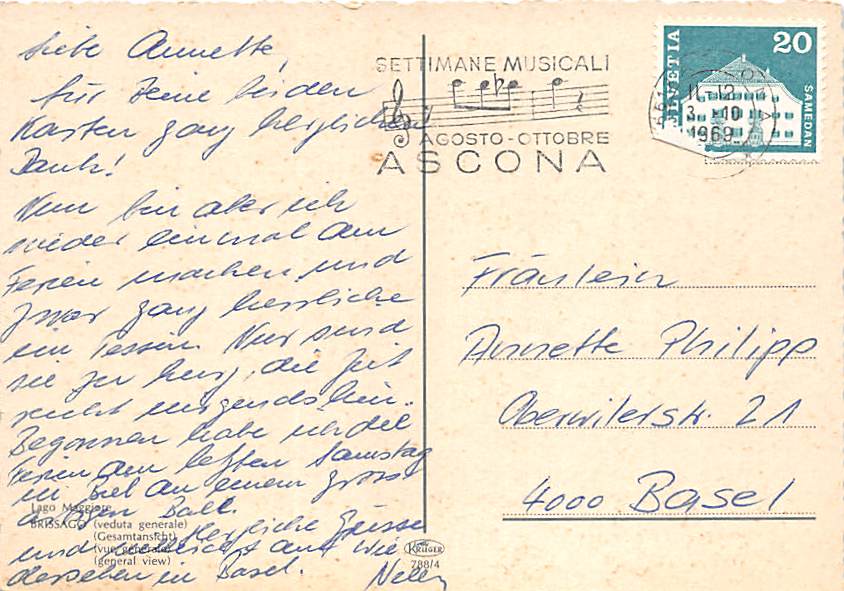 Liebe Annette,
für Deine beiden
Karten ganz herzlichen
Dank!
Nun bin aber ich
wieder einmal am
Ferien machen und
zwar ganz herrliche
im Tessin. Nur sind
sie zu kurz, die Zeit
reicht nirgends hin.
Begonnen habe ich die
Ferien am letzten Samstag
in Biel an einem gross-
Ball.
Herzliche Grüsse
und vielleicht auf Wie-
dersehen in Basel. Nelly
Lago Maggiore
BRISSAGO (veduta generale)
(Gesamtansicht)
(vue générale)
(general view)
KRÜGER
788/4
SETTIMANE MUSICALI
AGOSTO-OTTOBRE
ASCONA
HELVETIA
20
SAMEDAN
11-12
3. 10
1969
Fräulein
Annette Philipp
Oberwilerstr. 21
4000 Basel